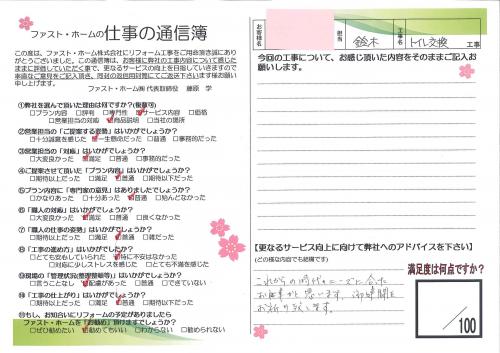 ファスト・ホームの仕事の通信簿
この度は、ファスト・ホーム株式会社にリフォーム工事をご用命頂き誠にあり
がとうございました。この通信簿は、お客様が弊社の工事内容について感じた
ままに評価していただく事で、更なるサービスの向上を目指していきますので
率直なご意見をご記入頂き、同封の返信用封筒にてご送下さいます様お願い
申し上げます。
ファスト・ホーム㈱ 代表取締役 藤原 学
①弊社を選んで頂いた理由は何ですか?(複数可)
□プラン内容 □評判 □専門性 □サービス内容 □価格
□営業担当の対応 □商品説明 □当社の場所
②営業担当の「ご提案する姿勢」はいかがでしょうか?
□十分誠意を感じた □一生懸命だった □普通 □事務的だった
③営業担当の「対応」はいかがでしょうか?
□大変良かった □満足 □普通 □事務的だった
④ご提案させて頂いた「プラン内容」はいかがでしょうか?
□期待以上だった □満足 □普通 □期待以下だった
⑤プラン内容に「専門家の意見」はありましたでしょうか?
□かなりあった □十分あった □普通 □殆んどなかった
⑥「職人の対応」はいかがでしょうか?
□大変良かった □満足 □普通 □良くなかった
⑦「職人の仕事の姿勢」はいかがでしょうか?
□期待以上だった □満足 □普通 □雑だった
⑧「工事の進め方」はいかがでしたか?
□とても安心していられた □特に不安はなかった
□対応に少しストレスを感じた □とても不満を感じた
⑨現場の「管理状況(整理整頓等)」はいかがでしたか?
□言うことなし □配慮があった □普通 □汚かった
⑩「工事の仕上がり」はいかがでしょうか?
□期待以上だった □満足 □普通 □期待以下だった
⑪もし、お知合いにリフォームの予定がありましたら
ファスト・ホームを「お勧め」頂けますでしょうか?
□ぜひ勧めたい □勧めてもいい □わからない □勧められない
お客様名
担当
鈴木
工事名
トイレ交換
工事
今回の工事について、お感じ頂いた内容をそのままご記入お
願いします。
【更なるサービス向上に向けて弊社へのアドバイスを下さい】
(どの様な内容でも結構です)
これからの時代のニーズに合った
お仕事かと思います。
お祈り致します。
満足度は何点ですか?
/100